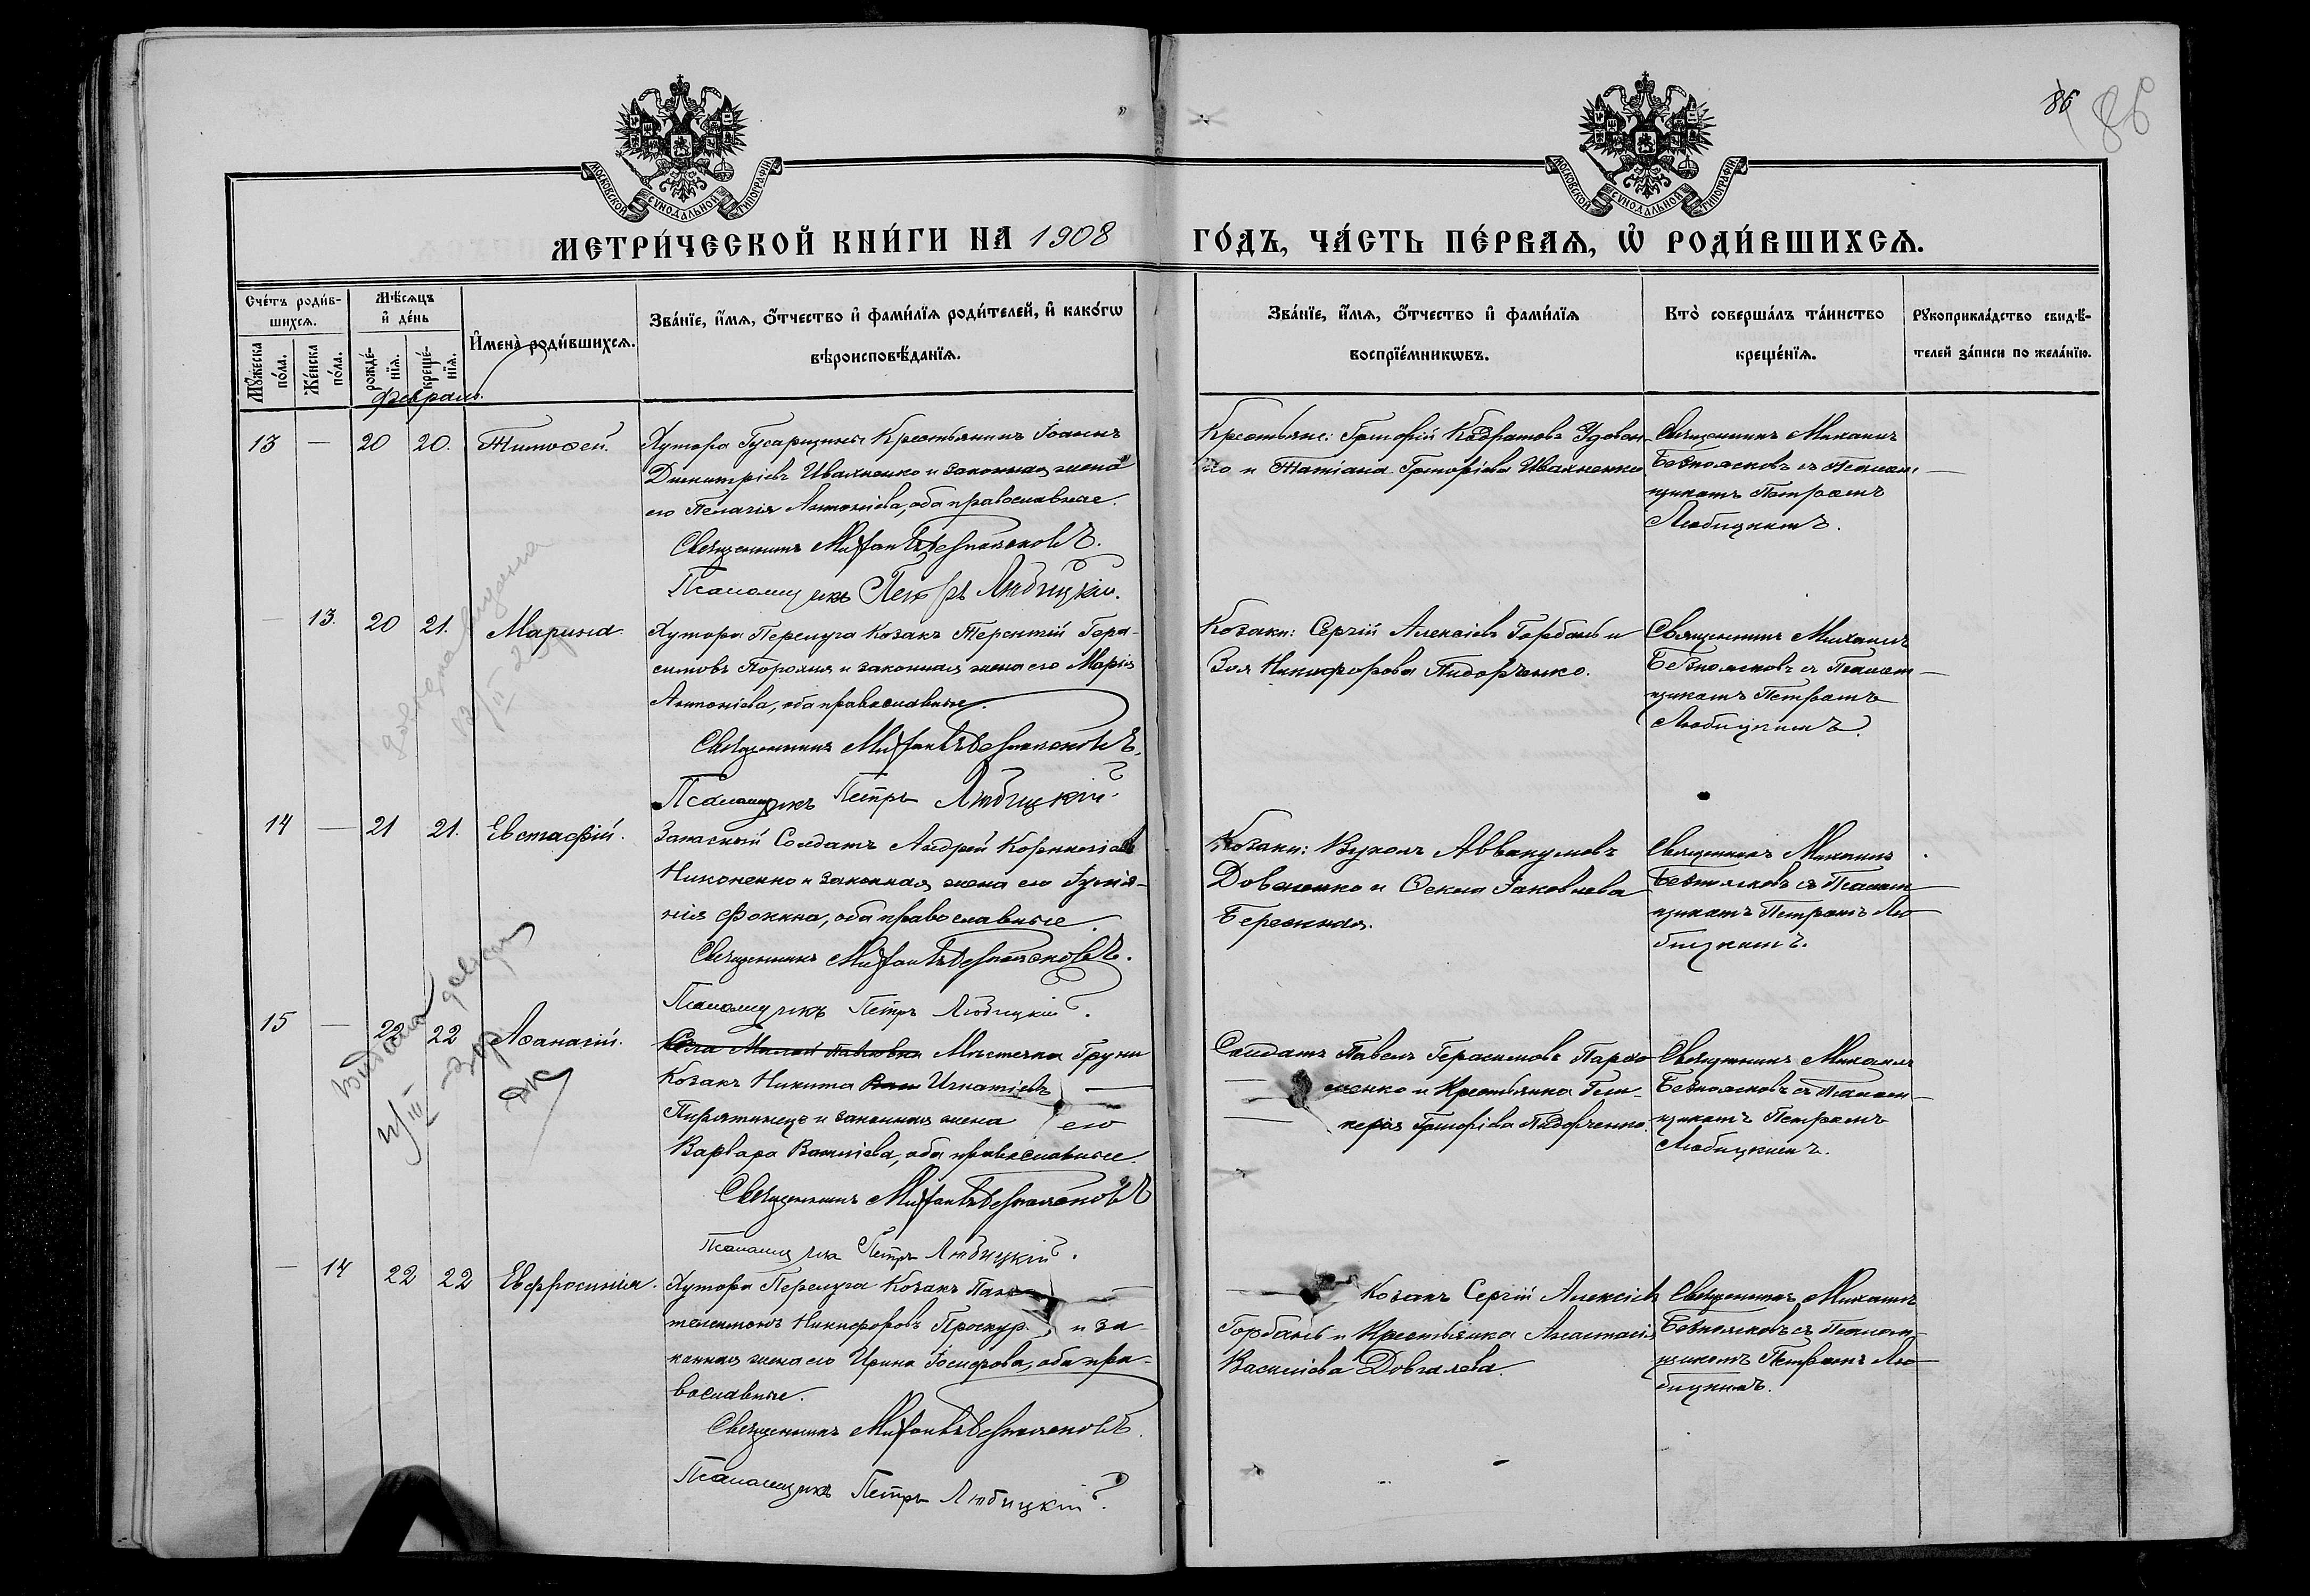 86
86
МОСКОВСКОЙ СѴНОДАЛЬНОЙ ТИПОГРАФІИ
МОСКОВСКОЙ СѴНОДАЛЬНОЙ ТИПОГРАФІИ
МЕТРИ́ЧЕСКОЙ КНИ́ГИ НА 1908
ГО́ДЪ, ЧА́СТЬ ПЕ́РВАѦ, Ѡ҆ РОДИ́ВШИХСѦ.
Сче́тъ роди́в-
шихсѧ.
Мꙋ́жеска
по́ла.
Же́нска
по́ла.
Мѣ́сѧцъ
и҆ де́нь
рожде́-
нїѧ.
креще́-
нїѧ.
И҆мена̀ роди́вшихсѧ.
Зва́нїе, и҆́мѧ, ѻ҆́тчество и҆ фами́лїѧ роди́телей, и҆ како́гѡ
вѣроисповѣ́данїѧ.
Зва́нїе, и҆́мѧ, ѻ҆́тчество и҆ фами́лїѧ
воспрїе́мникѡвъ.
Кто̀ соверша́лъ та́инство
креще́нїѧ.
Рꙋкоприкла́дство свидѣ́-
телей за́писи по жела́нїю.
Февраль.
13 — 20 20. Тимоѳей.
Хутора Гусарщины Крестьянинъ Іоаннъ
Димитріевъ Ивахненко и законная жена
его Пелагія Антоніева, оба православные.
Священникъ Михаилъ Безпоясковъ.
Псаломщикъ Петръ Любицкій.
Крестьяне: Григорій Кодратовъ Удовен-
ко и Татіана Григоріева Ивахненко
Священникъ Михаилъ
Безпоясковъ съ Псалом-
щикомъ Петромъ
Любицкимъ.
— 13. 20 21. Марина.
Хутора Перелуга Козакъ Терентій Гера-
симовъ Порохня и законная жена его Марія
Антоніева, оба православные.
Священникъ Михаилъ Безпоясковъ.
Псаломщикъ Петръ Любицкій.
Козаки: Сергій Алексіевъ Горбань и
Зоя Никифорова Пидорченко.
Священникъ Михаилъ
Безпоясковъ съ Псалом-
щикомъ Петромъ
Любицкимъ.
14 — 21 21. Евстафій.
Запасный Солдатъ Андрей Корниліевъ
Никоненко и законная жена его
Фокина, оба православные.
Священникъ Михаилъ Безпоясковъ.
Псаломщикъ Петръ Любицкій.
Козаки: Вуколъ Аввакумовъ
Довженко и Ѳекла Іаковлева
Священникъ Михаилъ
Безпоясковъ съ Псалом-
щикомъ Петромъ Лю-
бицкимъ.
15 — 22 22 Аѳанасій.
Села Малой Павловки Мѣстечка Груни
Козакъ Никита Игнатіевъ
Пирятинецъ и законная жена его
Варвара Василіева, оба православные.
Священникъ Михаилъ Безпоясковъ
Псаломщикъ Петръ Любицкій.
Солдатъ Павелъ Герасимовъ Пархо
менко и Крестьянка Гли-
керія Григоріева Пидорченко.
Священникъ Михаилъ
Безпоясковъ съ Псалом-
щикомъ Петромъ
Любицкимъ.
— 14 22 22 Евфросинія.
Хутора Перелуга Козакъ Пан-
телеимонъ Никифоровъ Проскур. и за-
конная жена его Ирина Іосифова, оба пра-
вославные.
Священникъ Михаилъ Безпоясковъ.
Псаломщикъ Петръ Любицкій.
Козакъ Сергій Алексіевъ
Горбань и Крестьянка Анастасія
Василіева Довгалева.
Священникъ Михаилъ
Безпоясковъ съ Псалом-
щикомъ Петромъ Лю-
бицкимъ.